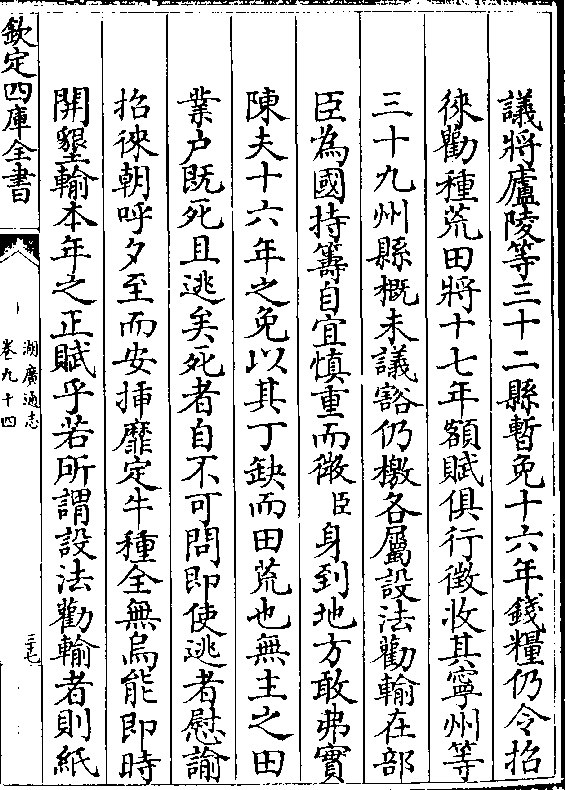 議將廬陵等三十二縣暫免十六年錢糧仍令招
徠勸種荒田將十七年額賦俱行徵收其寧州等
三十九州縣概未議豁仍檄各屬設法勸輸在部
臣為國持籌自宜慎重而微臣身到地方敢弗實
陳夫十六年之免以其丁缺而田荒也無主之田
業户既死且逃矣死者自不可問即使逃者慰諭
招徠朝呼夕至而安揷靡定牛種全無烏能即時
開墾輸本年之正賦乎若所謂設法勸輸者則紙
欽定四庫全書
湖廣通志
卷九十四
三七